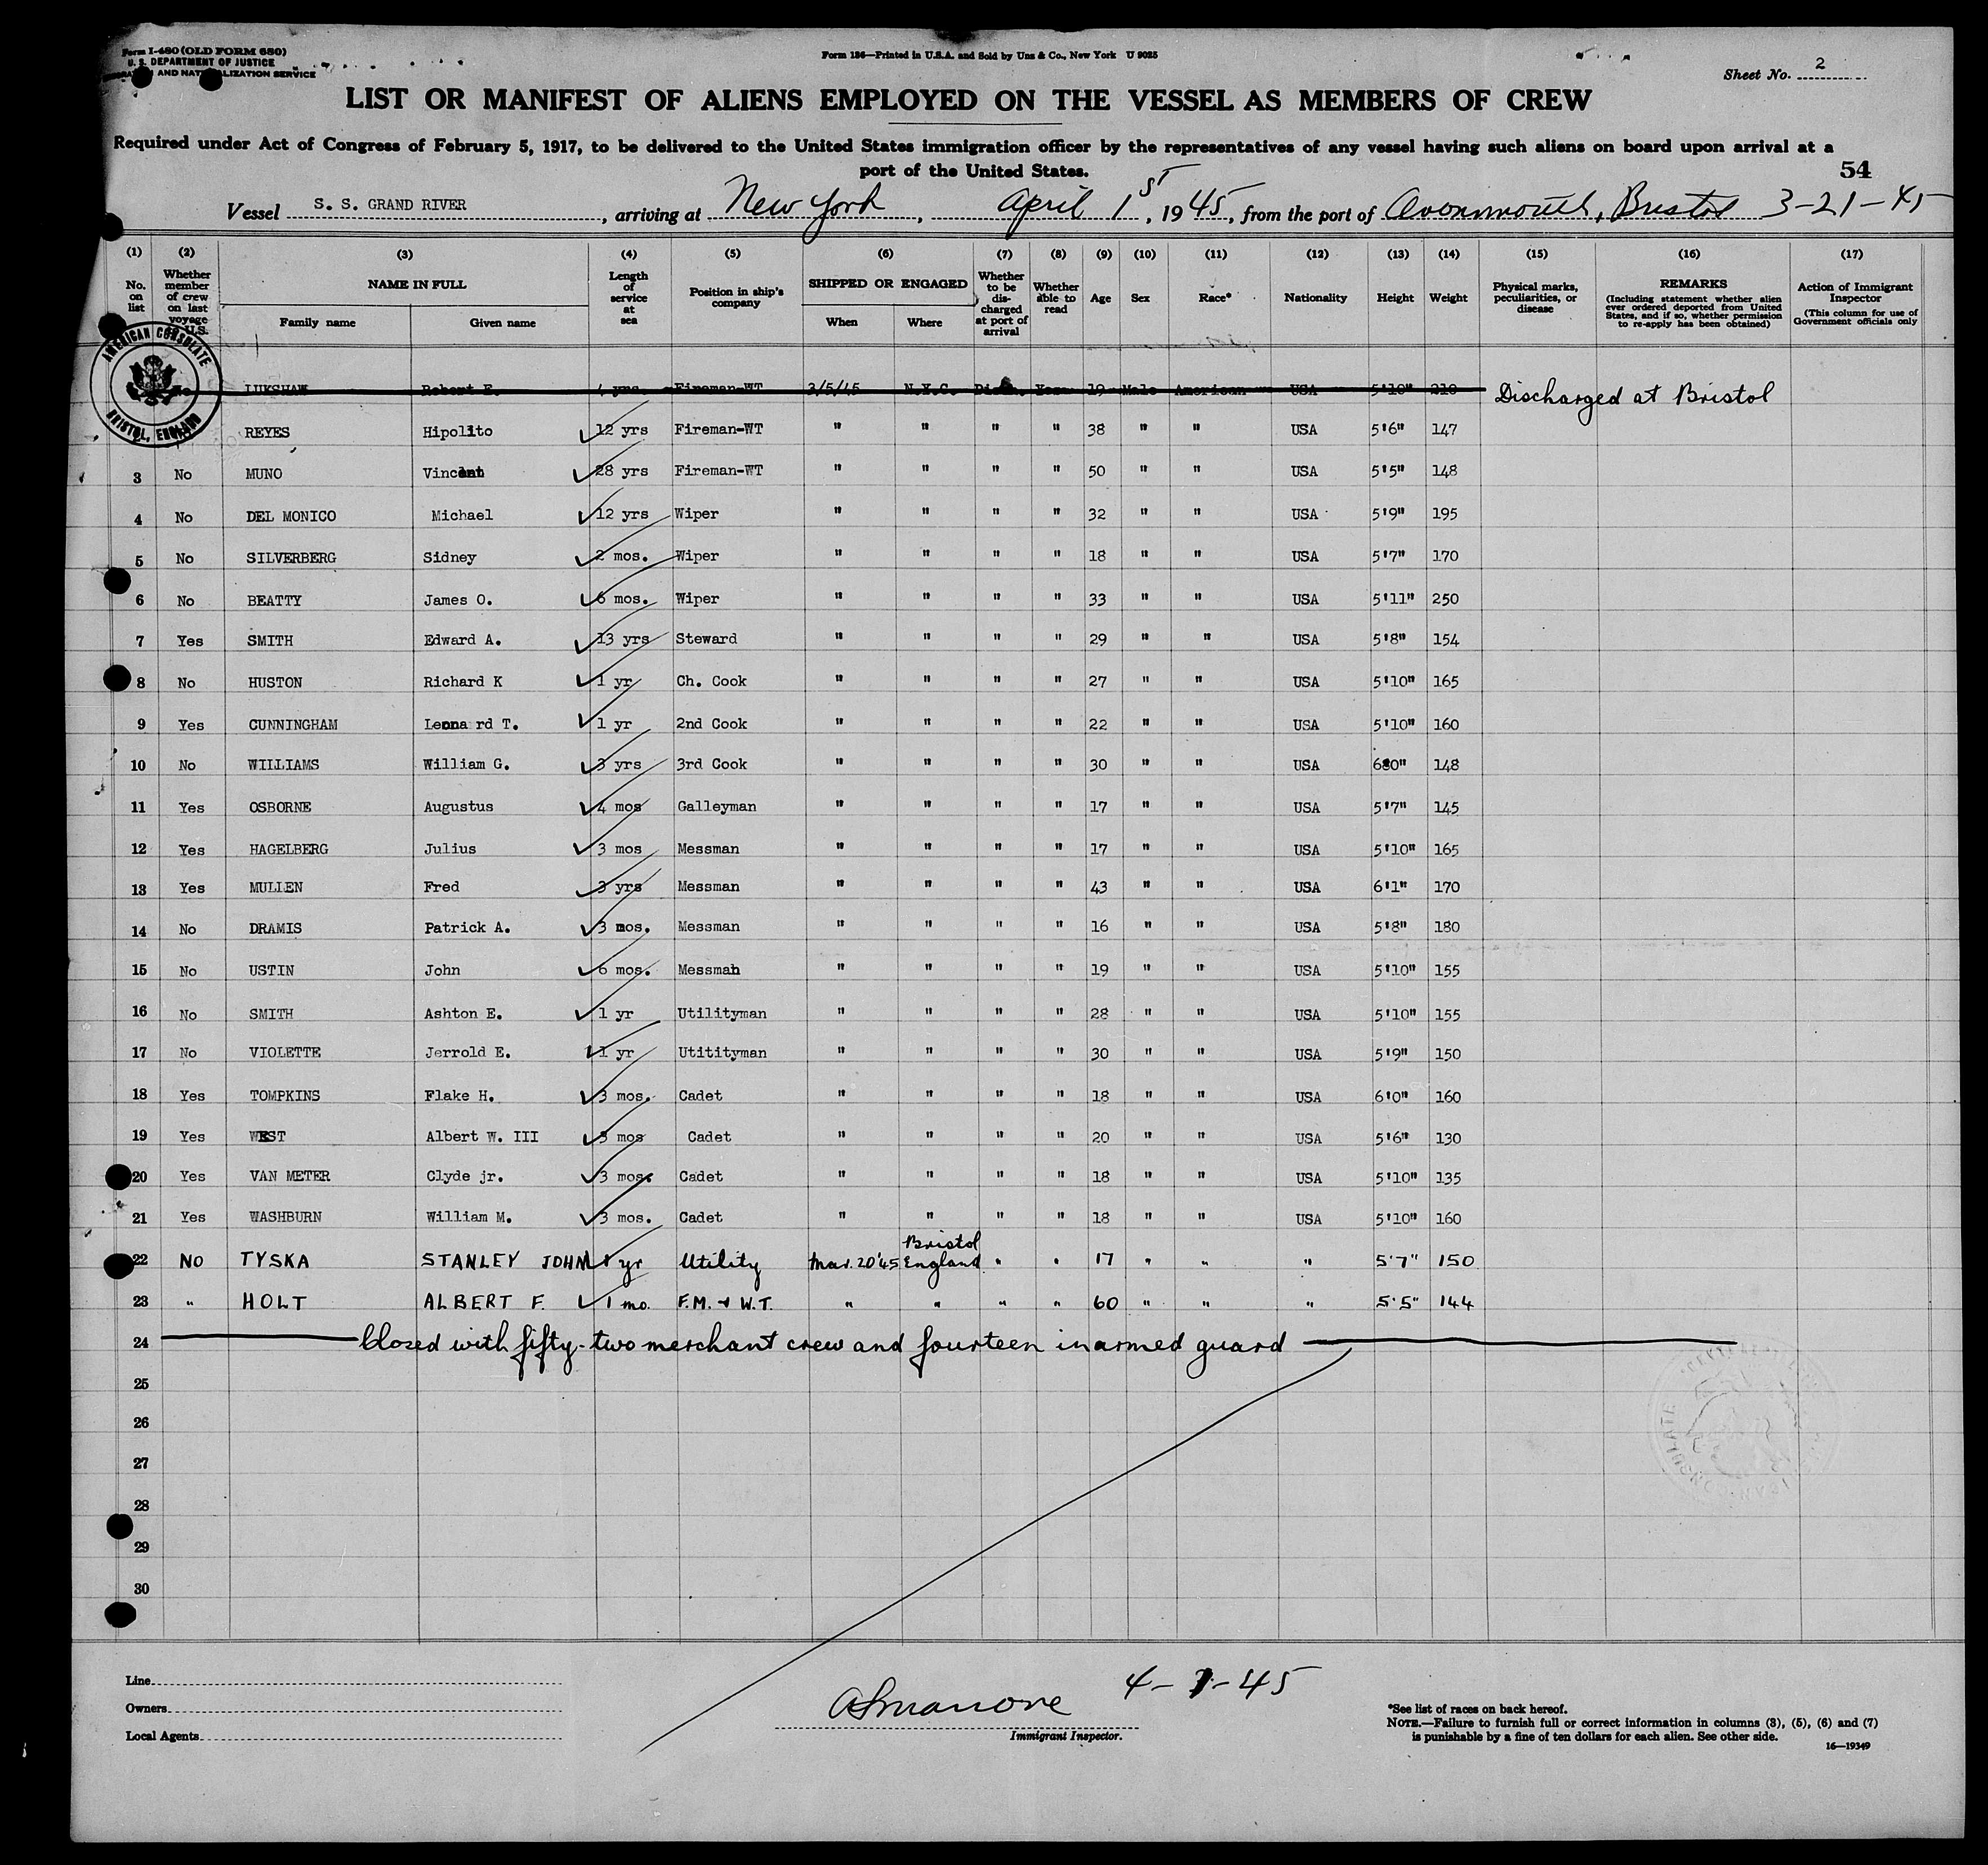 Form I-480 (OLD FORM 680)
U. S. DEPARTMENT OF JUSTICE
AND NATURALIZATION SERVICE
Form 136—Printed in U.S.A. and Sold by Unz & Co., New York U 9025
Sheet No. 2
LIST OR MANIFEST OF ALIENS EMPLOYED ON THE VESSEL AS MEMBERS OF CREW
Required under Act of Congress of February 5, 1917, to be delivered to the United States immigration officer by the representatives of any vessel having such aliens on board upon arrival at a
port of the United States.
54
Vessel S. S. GRAND RIVER, arriving at New York, April 1st, 1945, from the port of Avonmouth, Bristol 3-21-45
(1) (2) (3) (4) (5) (6) (7) (8) (9) (10) (11) (12) (13) (14) (15) (16) (17)
No. on list
Whether member of crew on last voyage U.S.
NAME IN FULL
Family name Given name
Length of service at sea
Position in ship's company
SHIPPED OR ENGAGED
When Where
Whether to be discharged at port of arrival
Whether able to read
Age
Sex
Race*
Nationality
Height
Weight
Physical marks, peculiarities, or disease
REMARKS
(Including statement whether alien ever ordered deported from United States, and if so, whether permission to re-apply has been obtained)
Action of Immigrant Inspector
(This column for use of Government officials only
AMERICAN CONSULATE
BRISTOL, ENGLAND
LUKSHAW Robert E. 4 yrs. Fireman-WT 3/5/45 N.Y.C. Disch. Yes 19 Male American USA 5'10" 210 Discharged at Bristol
REYES Hipolito 12 yrs Fireman-WT " " " " 38 " " USA 5'6" 147
3 No MUNO Vincent 28 yrs Fireman-WT " " " " 50 " " USA 5'5" 148
4 No DEL MONICO Michael 12 yrs Wiper " " " " 32 " " USA 5'9" 195
5 No SILVERBERG Sidney 2 mos. Wiper " " " " 18 " " USA 5'7" 170
6 No BEATTY James O. 6 mos. Wiper " " " " 33 " " USA 5'11" 250
7 Yes SMITH Edward A. 13 yrs Steward " " " " 29 " " USA 5'8" 154
8 No HUSTON Richard K 1 yr Ch. Cook " " " " 27 " " USA 5'10" 165
9 Yes CUNNINGHAM Leonard T. 1 yr 2nd Cook " " " " 22 " " USA 5'10" 160
10 No WILLIAMS William G. 3 yrs 3rd Cook " " " " 30 " " USA 6'0" 148
11 Yes OSBORNE Augustus 4 mos Galleyman " " " " 17 " " USA 5'7" 145
12 Yes HAGELBERG Julius 3 mos Messman " " " " 17 " " USA 5'10" 165
13 Yes MULLEN Fred 3 yrs Messman " " " " 43 " " USA 6'1" 170
14 No DRAMIS Patrick A. 3 mos. Messman " " " " 16 " " USA 5'8" 180
15 No USTIN John 6 mos. Messman " " " " 19 " " USA 5'10" 155
16 No SMITH Ashton E. 1 yr Utilityman " " " " 28 " " USA 5'10" 155
17 No VIOLETTE Jerrold E. 1 yr Utitityman " " " " 30 " " USA 5'9" 150
18 Yes TOMPKINS Flake H. 3 mos. Cadet " " " " 18 " " USA 6'0" 160
19 Yes WEST Albert W. III 3 mos Cadet " " " " 20 " " USA 5'6" 130
20 Yes VAN METER Clyde jr. 3 mos. Cadet " " " " 18 " " USA 5'10" 135
21 Yes WASHBURN William M. 3 mos. Cadet " " " " 18 " " USA 5'10" 160
22 NO TYSKA STANLEY JOHN 1 yr Utility Mar. 20'45 Bristol England " " 17 " " " 5'7" 150
23 " HOLT ALBERT F. 1 mo. F.M. & W.T. " " " " 60 " " " 5'5" 144
24 Closed with fifty-two merchant crew and fourteen in armed guard
25
26
27
28
29
30
Line
Owners
Local Agents
4-1-45
Immigrant Inspector.
*See list of races on back hereof.
NOTE.—Failure to furnish full or correct information in columns (3), (5), (6) and (7)
is punishable by a fine of ten dollars for each alien. See other side.
16—19349